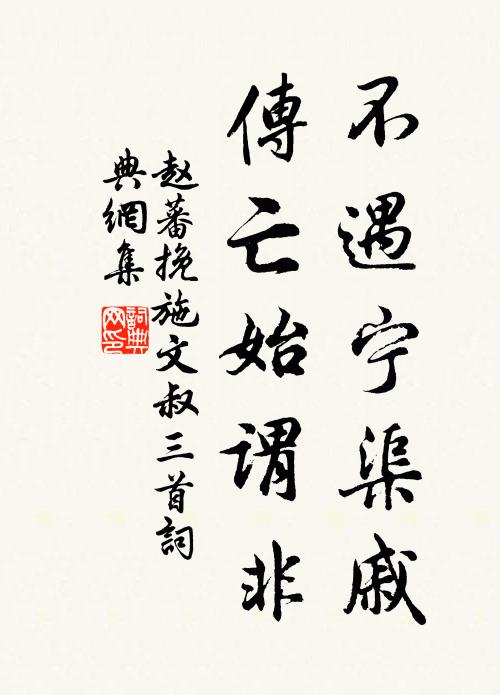 不遇宁渠戚
傳亡始谓非
赵蕃挽施文叔三首詞
典網集
詞典网印